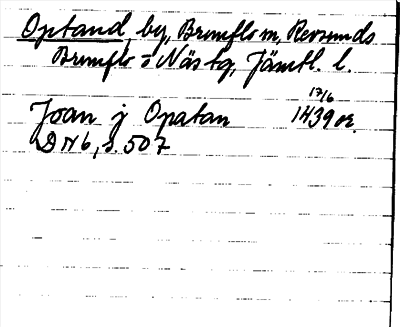 Optand, by, Brunflo sn, Revsunds
Brunflo o Näs tg, Jämtl. l.
17/6
Joan j Opatan 1439 or.
DN 6, s. 507